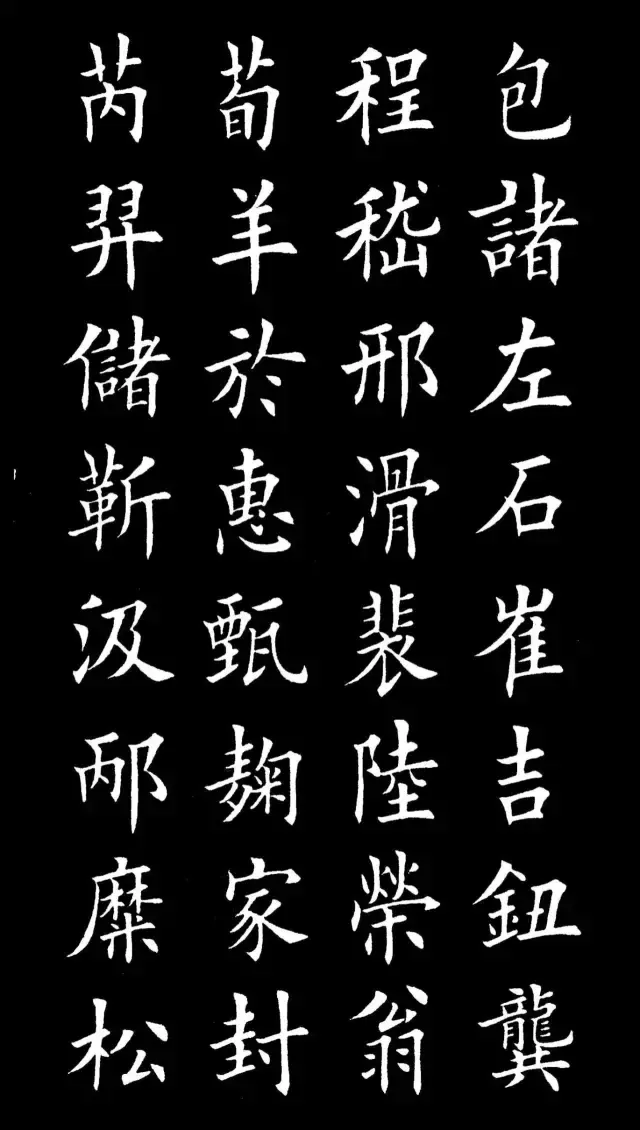 包諸左石崔吉鈕龔
程嵇邢滑裴陸榮翁
荀羊於惠甄麴家封
芮羿儲靳汲邴糜松